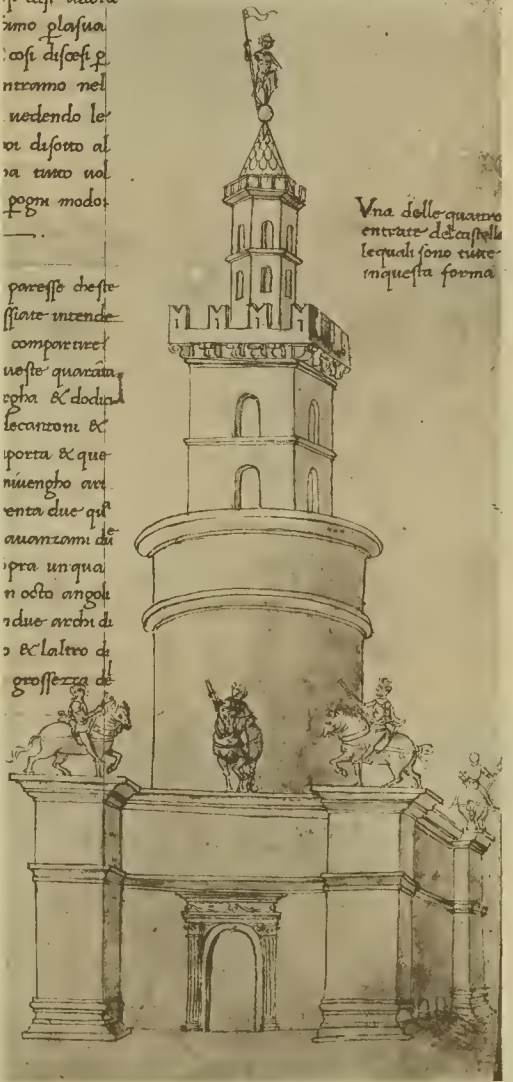 uimo p̲lasua
cosi discesi p̲
ntramo nel
uedendo le
uoi disotto al
na tutto uol
p̲ogni modo:
paresse cheste
ssiate intende
compartire
ueste quarāta
rgha & dodici
lecantoni &
porta & que
niuengho ari
renta due qu
auanzami di
opra unqua
n octo angoli
ndue archi di
o & laltro di
grossezza de
Vna delle quattro
entrate del castello
lequali sono tutte
inquesta forma